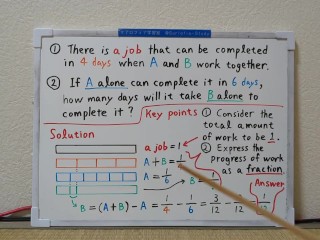 ① There is a job that can be completed
in 4 days when A and B work together.
② If A alone can complete it in 6 days,
how many days will it take B alone to
complete it?
Key points
① Consider the
total amount
of work to be 1.
② Express the
progress of work
as a fraction.
Solution
a job = 1
A + B = 1
A = 1/6
B =
Answer
B = (A+B) - A = 1/4 - 1/6 = 3/12 - /12